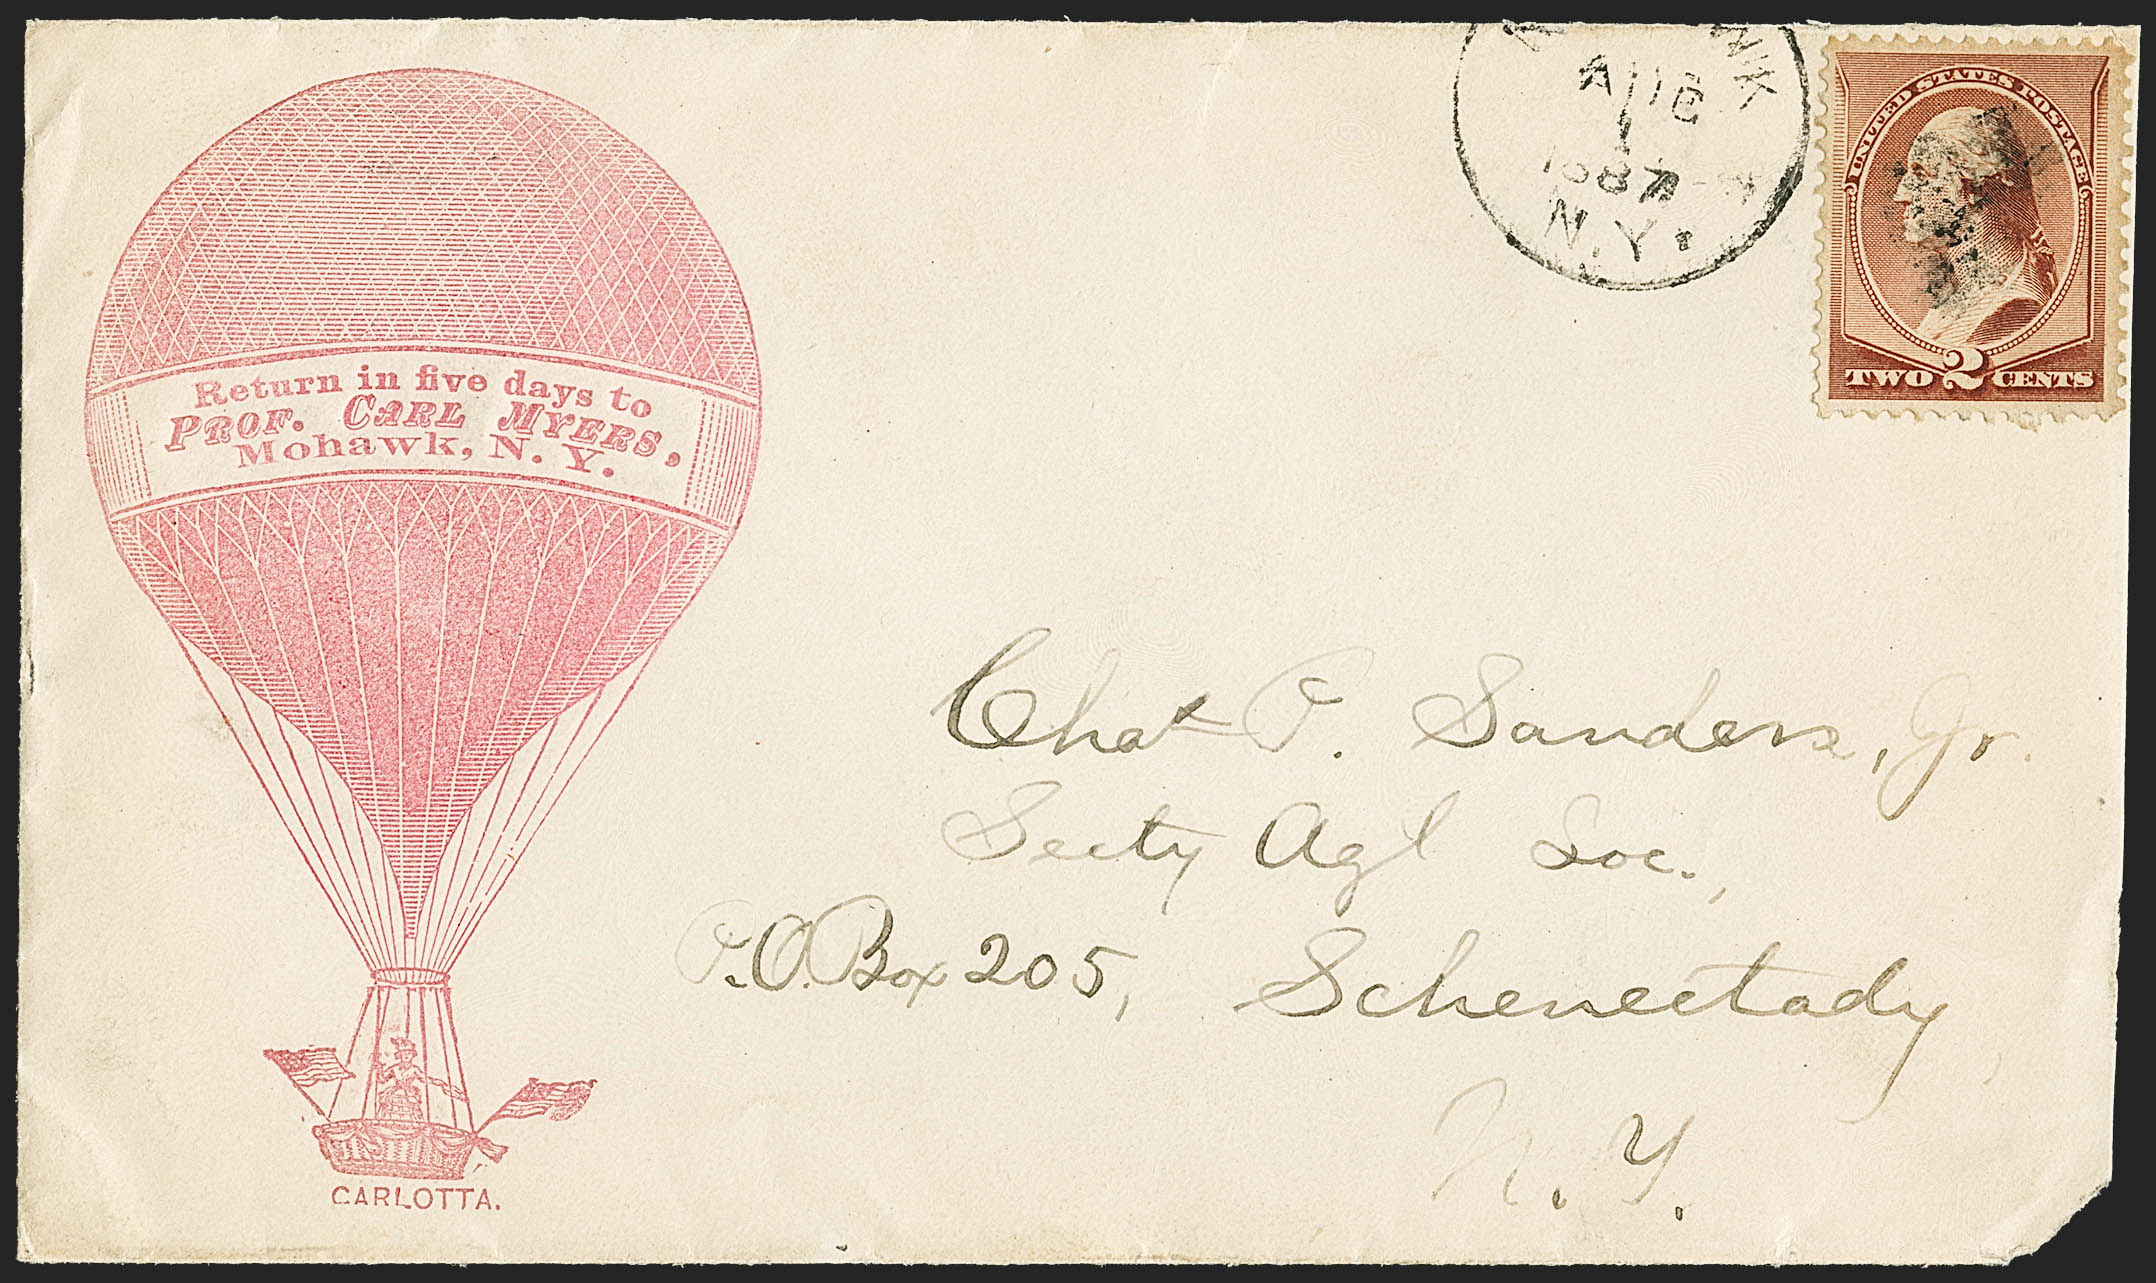 Return in five days to
PROF. CARL MYERS,
Mohawk, N. Y.
CARLOTTA.
AUG
1
1887
N.Y.
UNITED STATES POSTAGE
TWO 2 CENTS
Chas P. Sanders, Jr.
Secty Agl Soc.,
P.O. Box 205, Schenectady
N. Y.